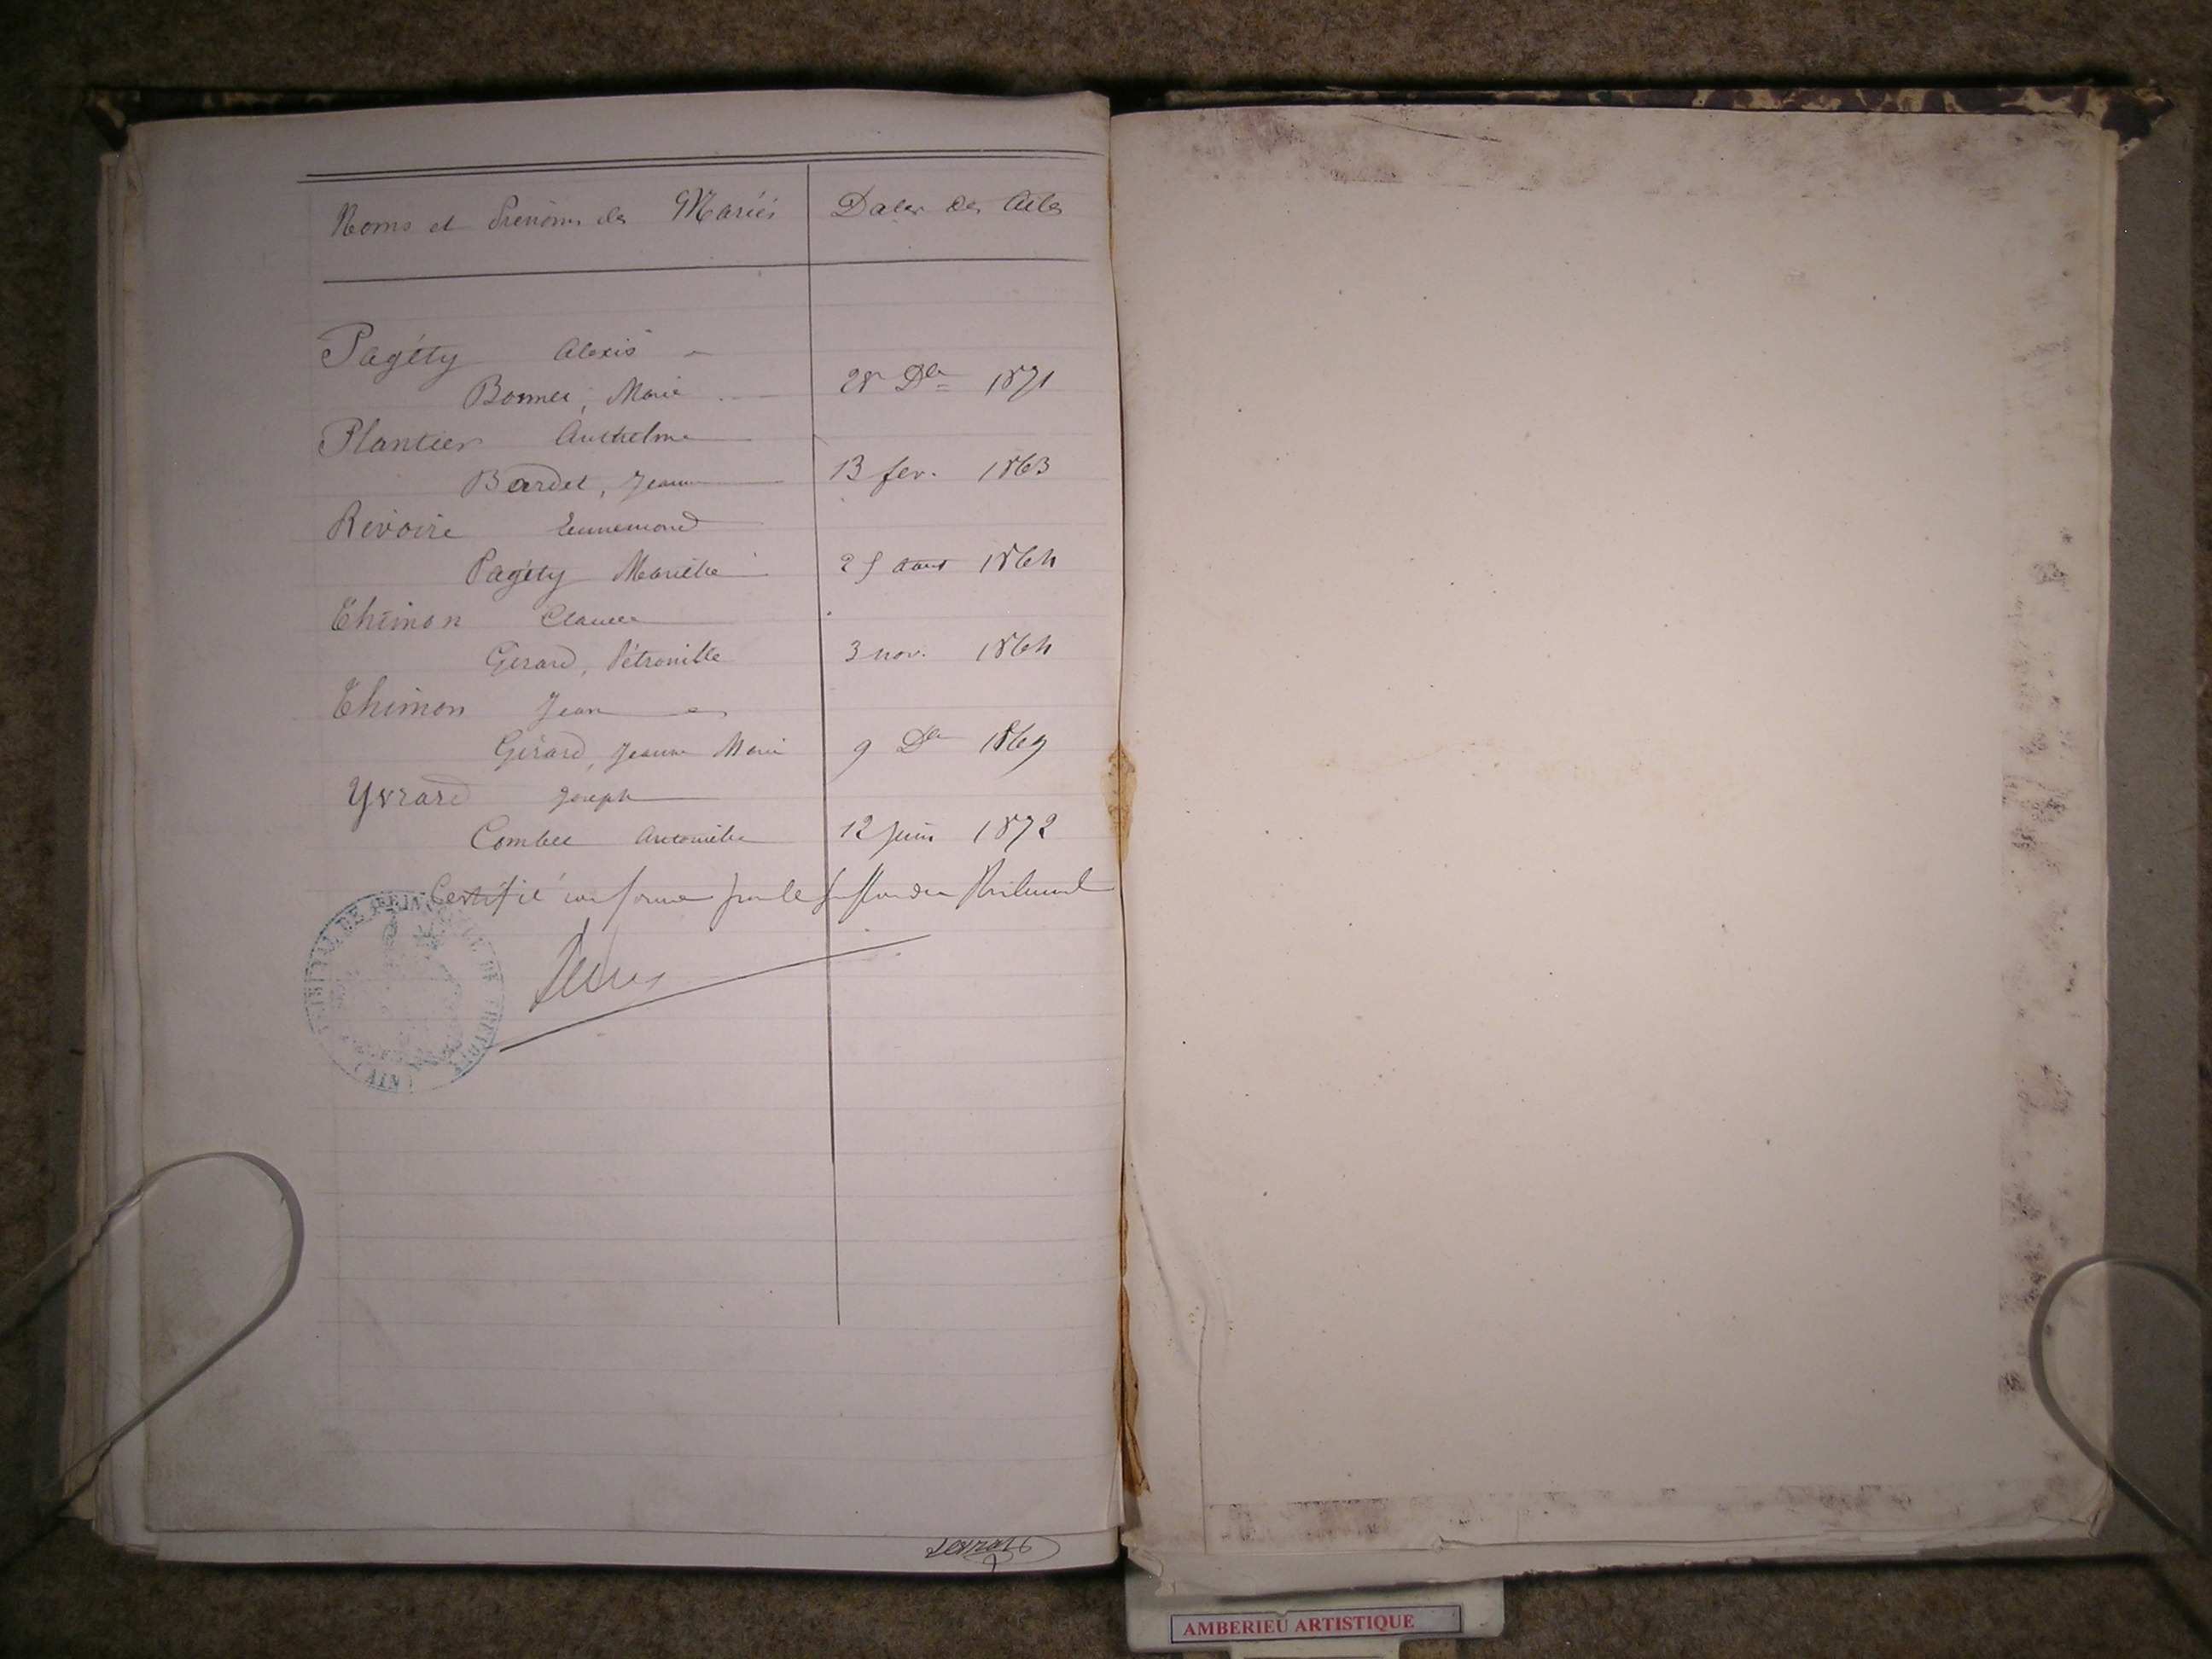 Noms et Prénoms des Mariés Dates des Actes
Pagéty Alexis
Bonnet, Marie 28 Dbre 1871
Plantier Anthelme
Bardet, Jeanne 13 fev. 1863
Revoire Ennemond
Pagéty Mariette 25 Aout 1864
Thimon Claude
Gérard, Pétronille 3 nov. 1864
Thimon Jean
Gérard, Jeanne Marie 9 Dbre 1869
Yvrard Joseph
Combet Antoinette 12 Juin 1872
Certifié conforme par le Greffier du Tribunal
TRIBUNAL DE PREMIERE DE TREVOUX
(AIN)
AMBERIEU ARTISTIQUE